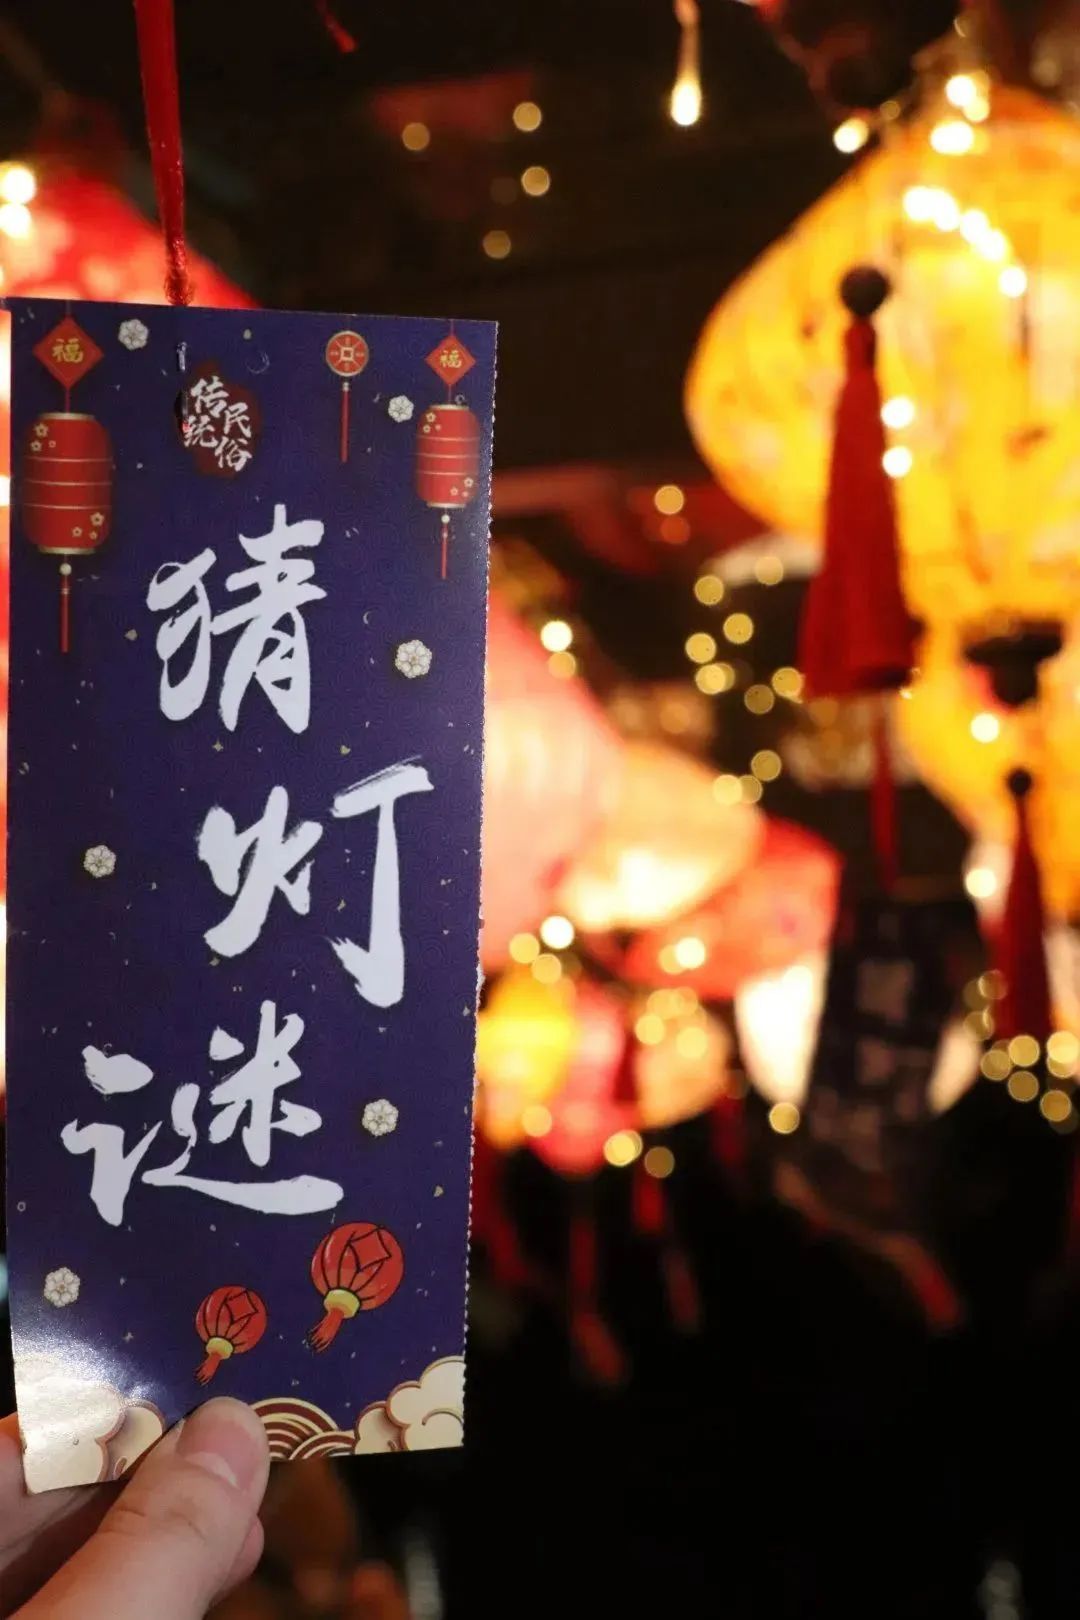 福
福
传统
民俗
猜灯谜